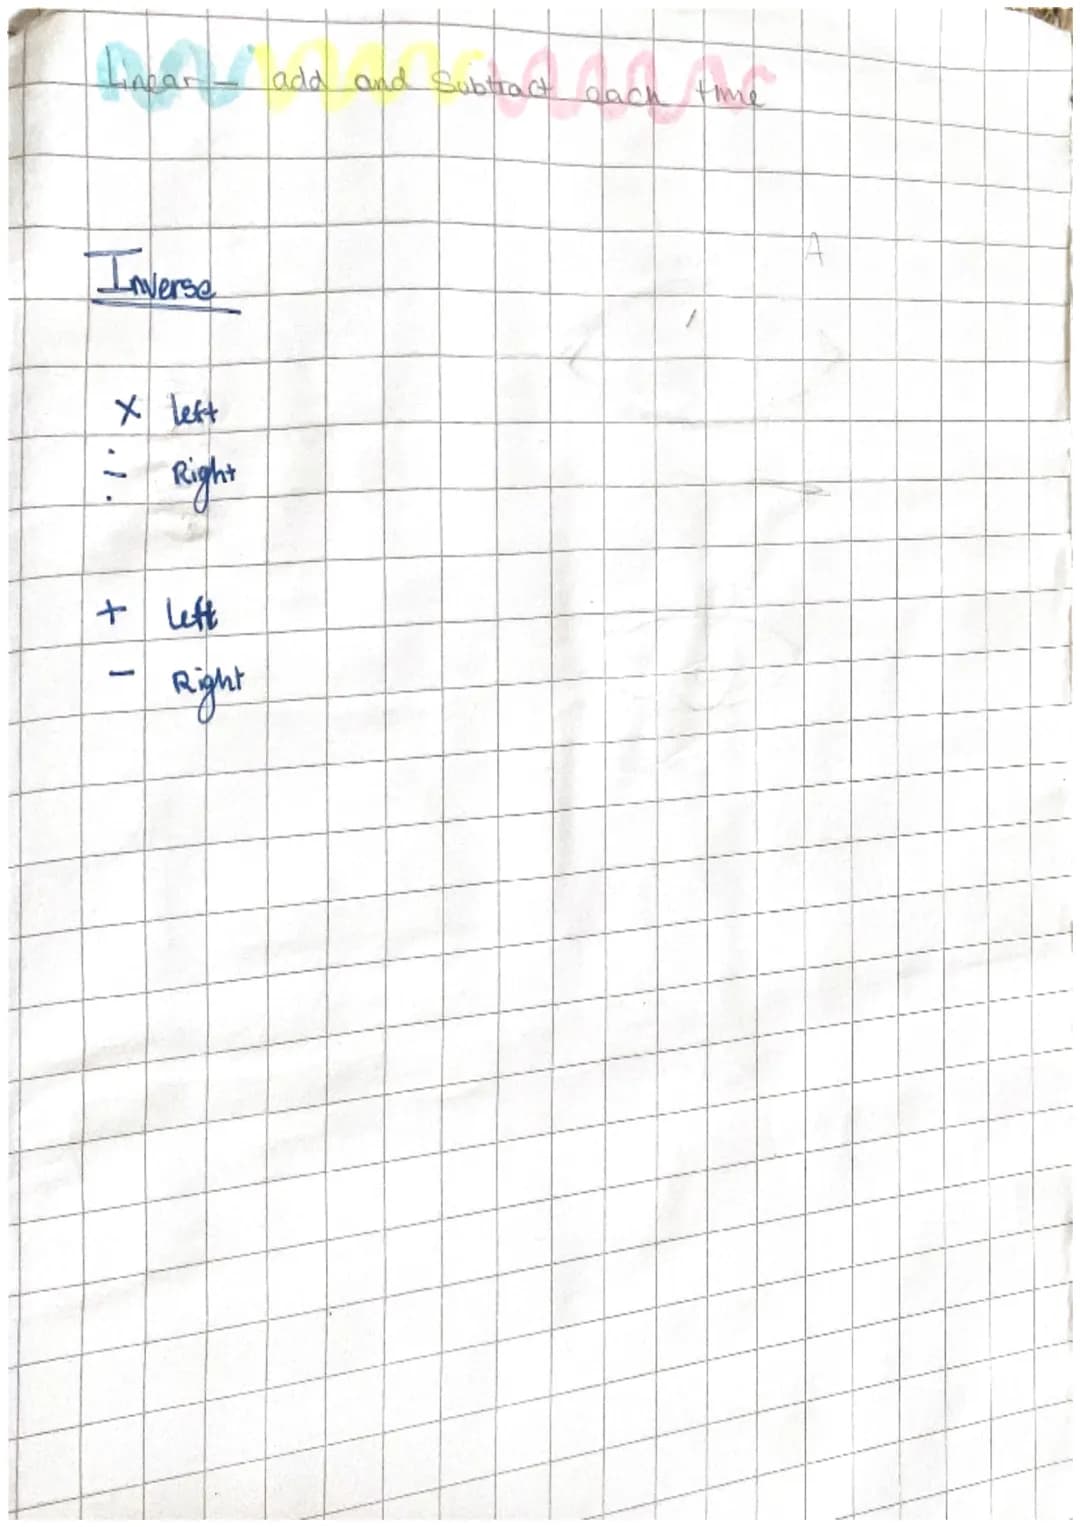 Linear - add and Subtract each time
A
Inverse
× left
÷ Right
+ left
- Right